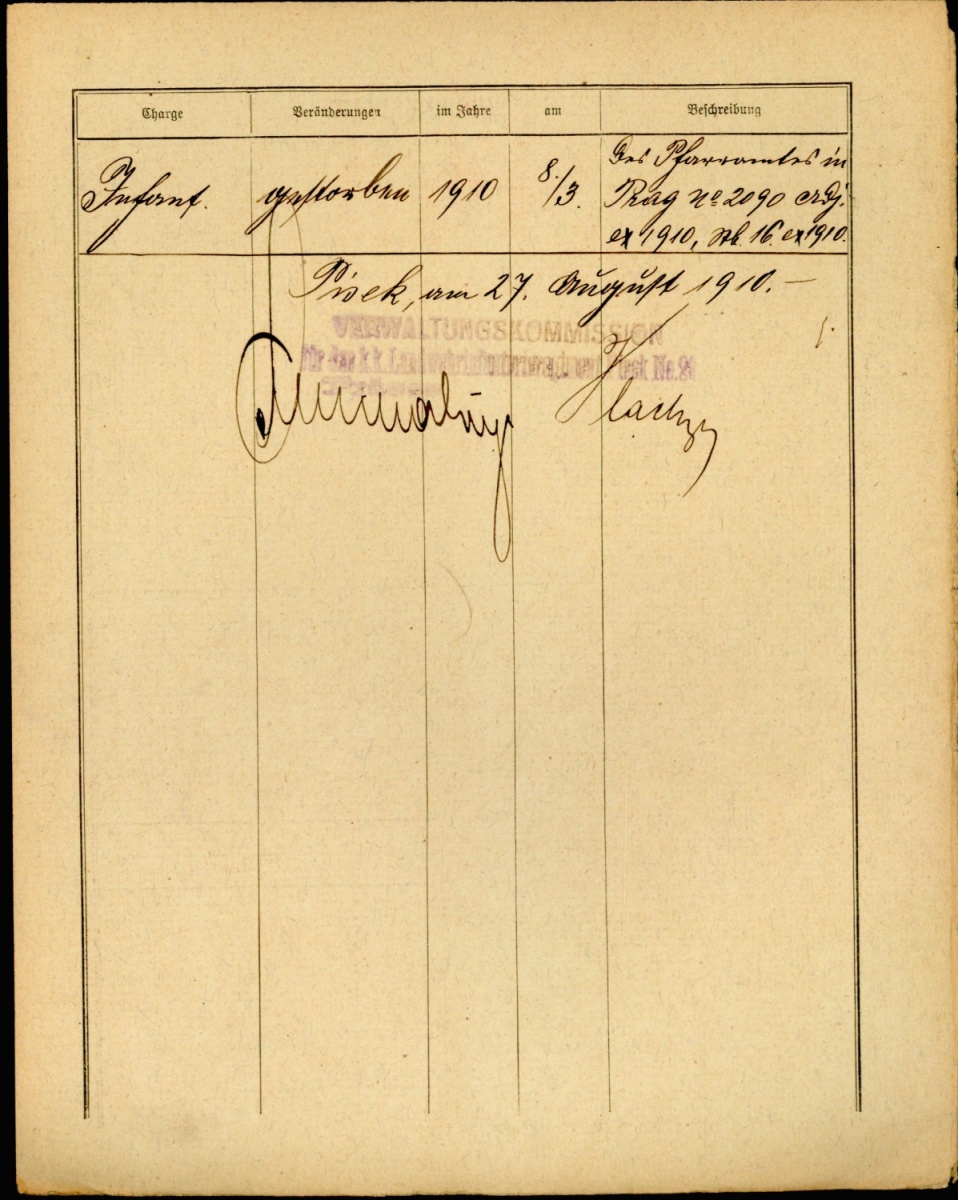 Charge Veränderungen im Jahre am Beschreibung
Infant. gestorben 1910 8./3. Des Pfarramtes in
Prag No 2090 Adj.
ex 1910, Stb. 16. ex 1910.
Pisek, am 27. August 1910.—
VERWALTUNGSKOMMISSION
für das k.k. Landwehrinfanterieregiment Pisek No. 28